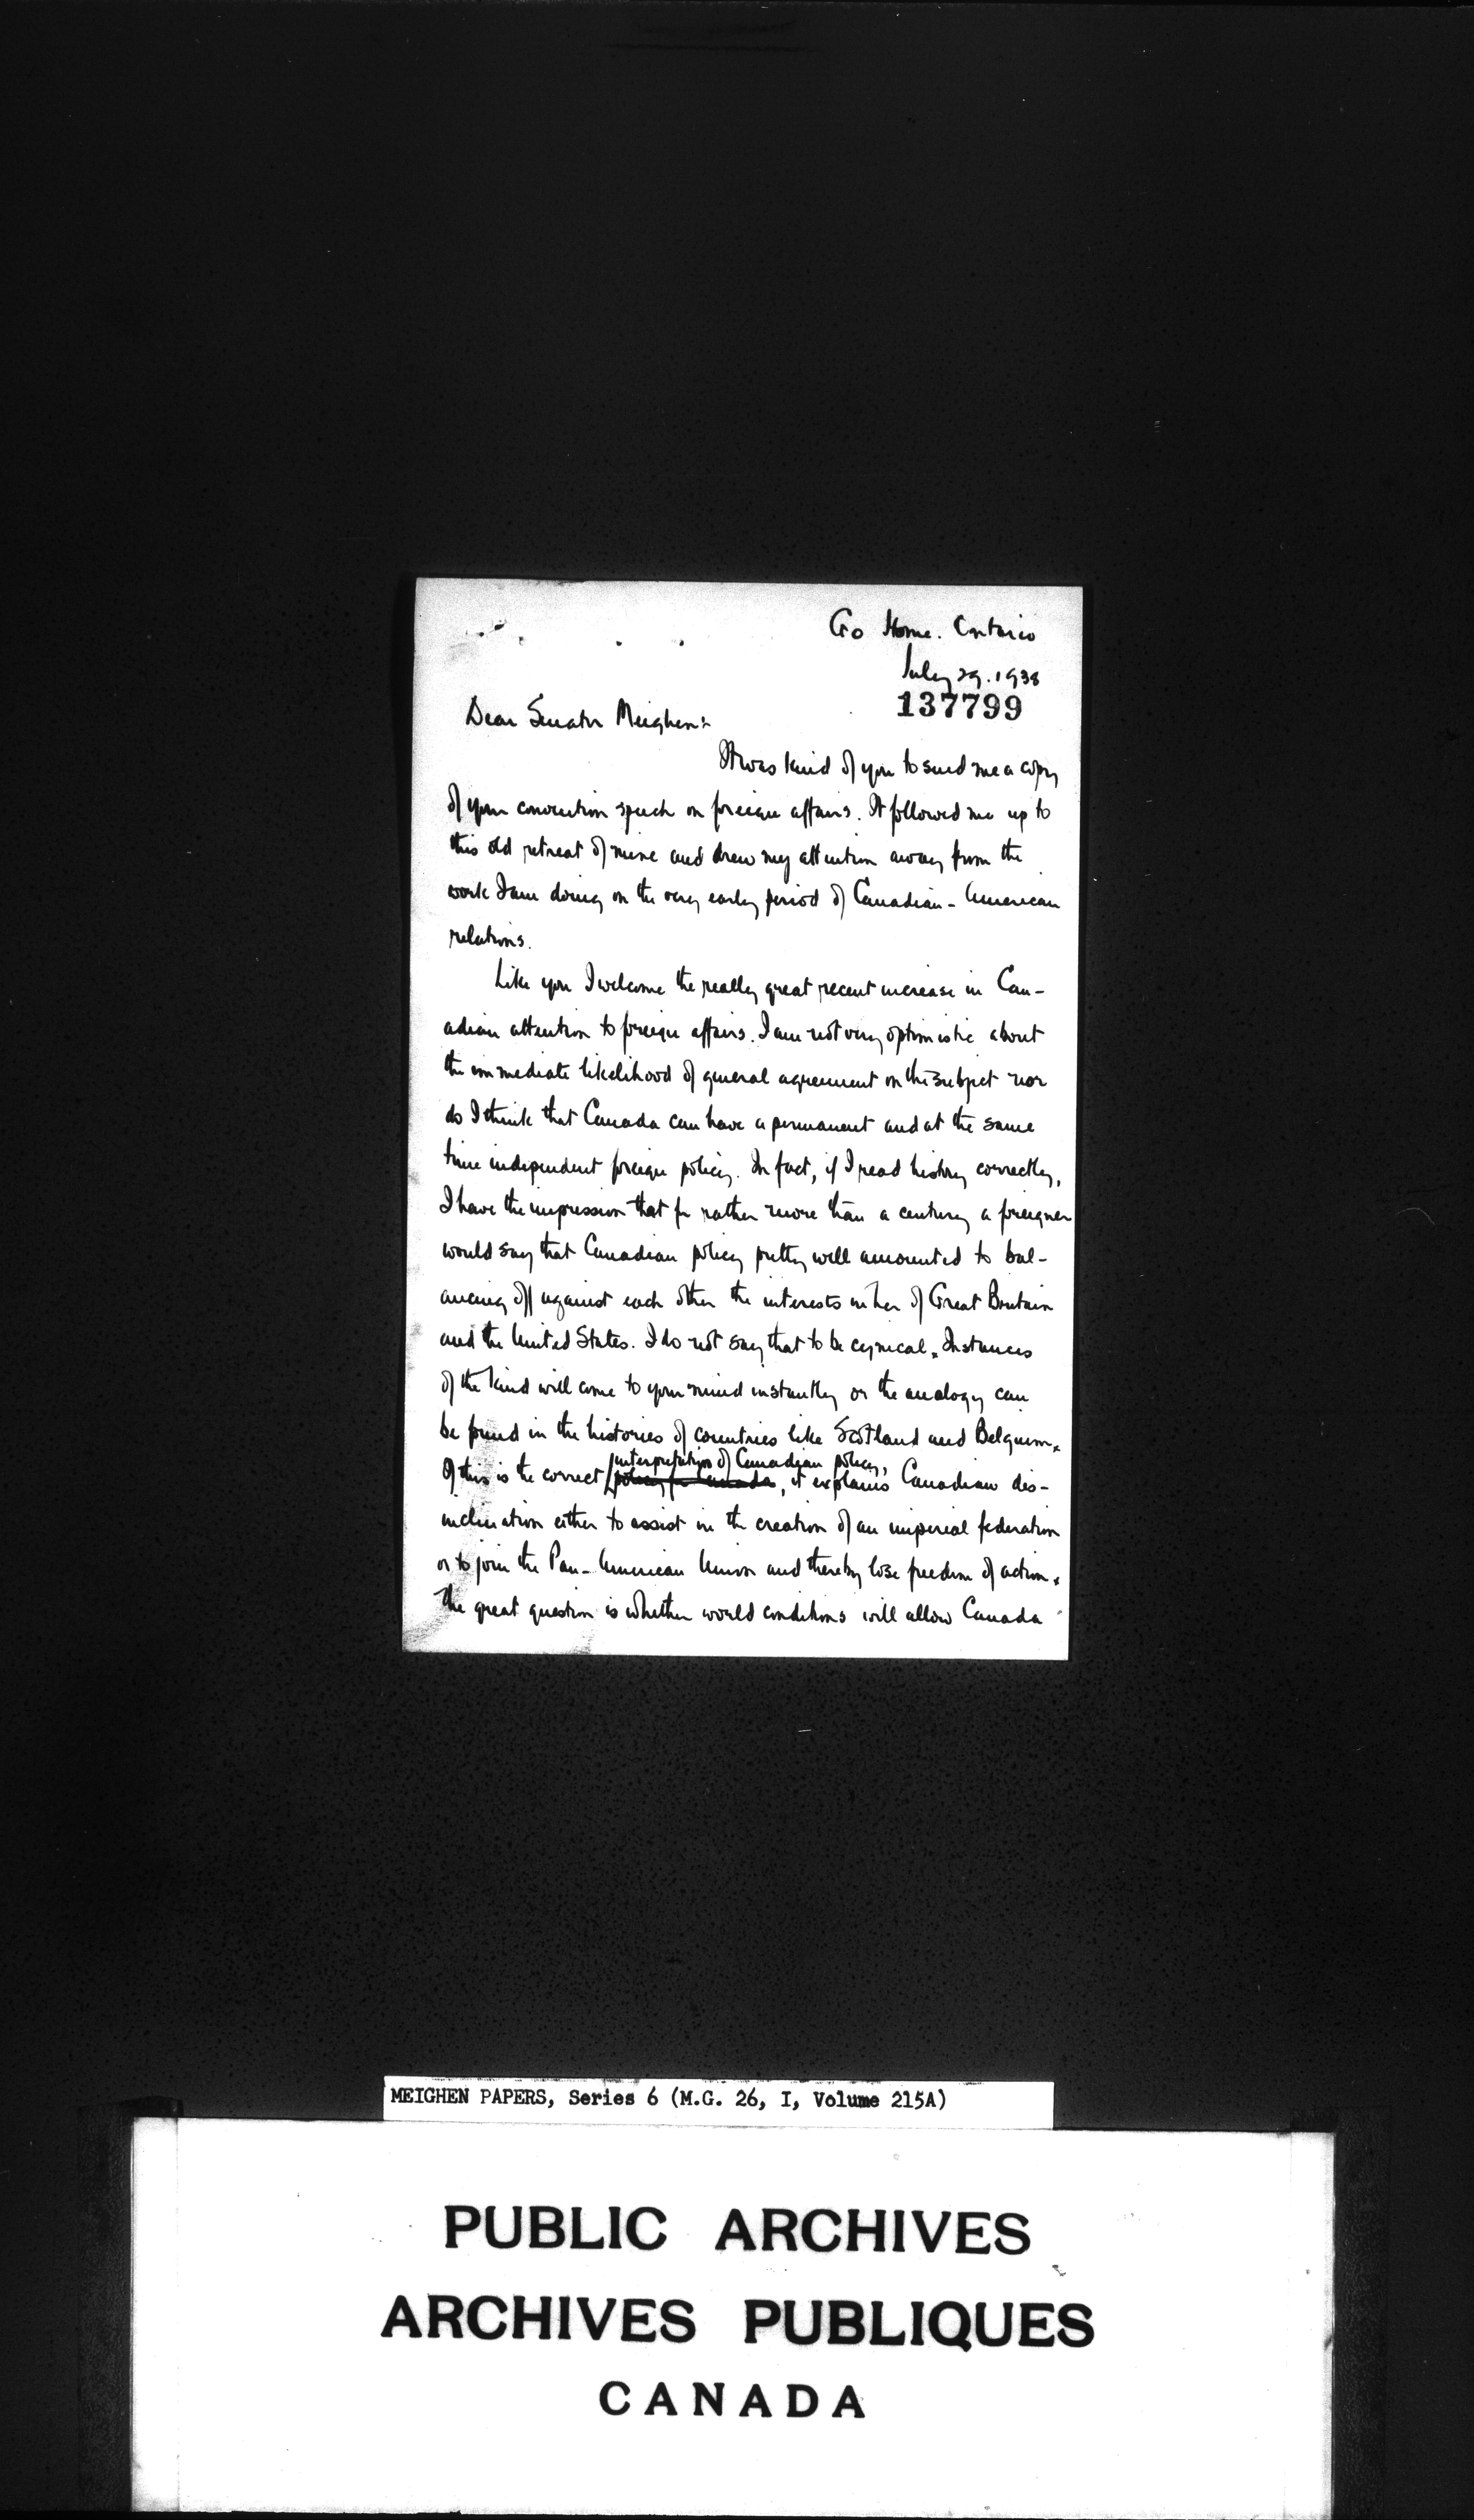 Go Home. Ontario
July 29. 1938
137799
Dear Senator Meighen:
It was kind of you to send me a copy
of your convention speech on foreign affairs. It followed me up to
this old retreat of mine and drew my attention away from the
work I am doing on the very early period of Canadian-American
relations.
Like you I welcome the really great recent increase in Can-
adian attention to foreign affairs. I am not very optimistic about
the immediate likelihood of general agreement on the subject nor
do I think that Canada can have a permanent and at the same
time independent foreign policy. In fact, if I read history correctly,
I have the impression that for rather more than a century a foreigner
would say that Canadian policy pretty well amounted to bal-
ancing off against each other the interests in her of Great Britain
and the United States. I do not say that to be cynical. Instances
of the kind will come to your mind instantly or the analogy can
be found in the histories of countries like Scotland and Belgium.
interpretation of Canadian policy,
If this is the correct policy for Canada, it explains Canadian dis-
inclination either to assist in the creation of an imperial federation
or to join the Pan-American Union and thereby lose freedom of action.
The great question is whether world conditions will allow Canada
MEIGHEN PAPERS, Series 6 (M.G. 26, I, Volume 215A)
PUBLIC ARCHIVES
ARCHIVES PUBLIQUES
CANADA